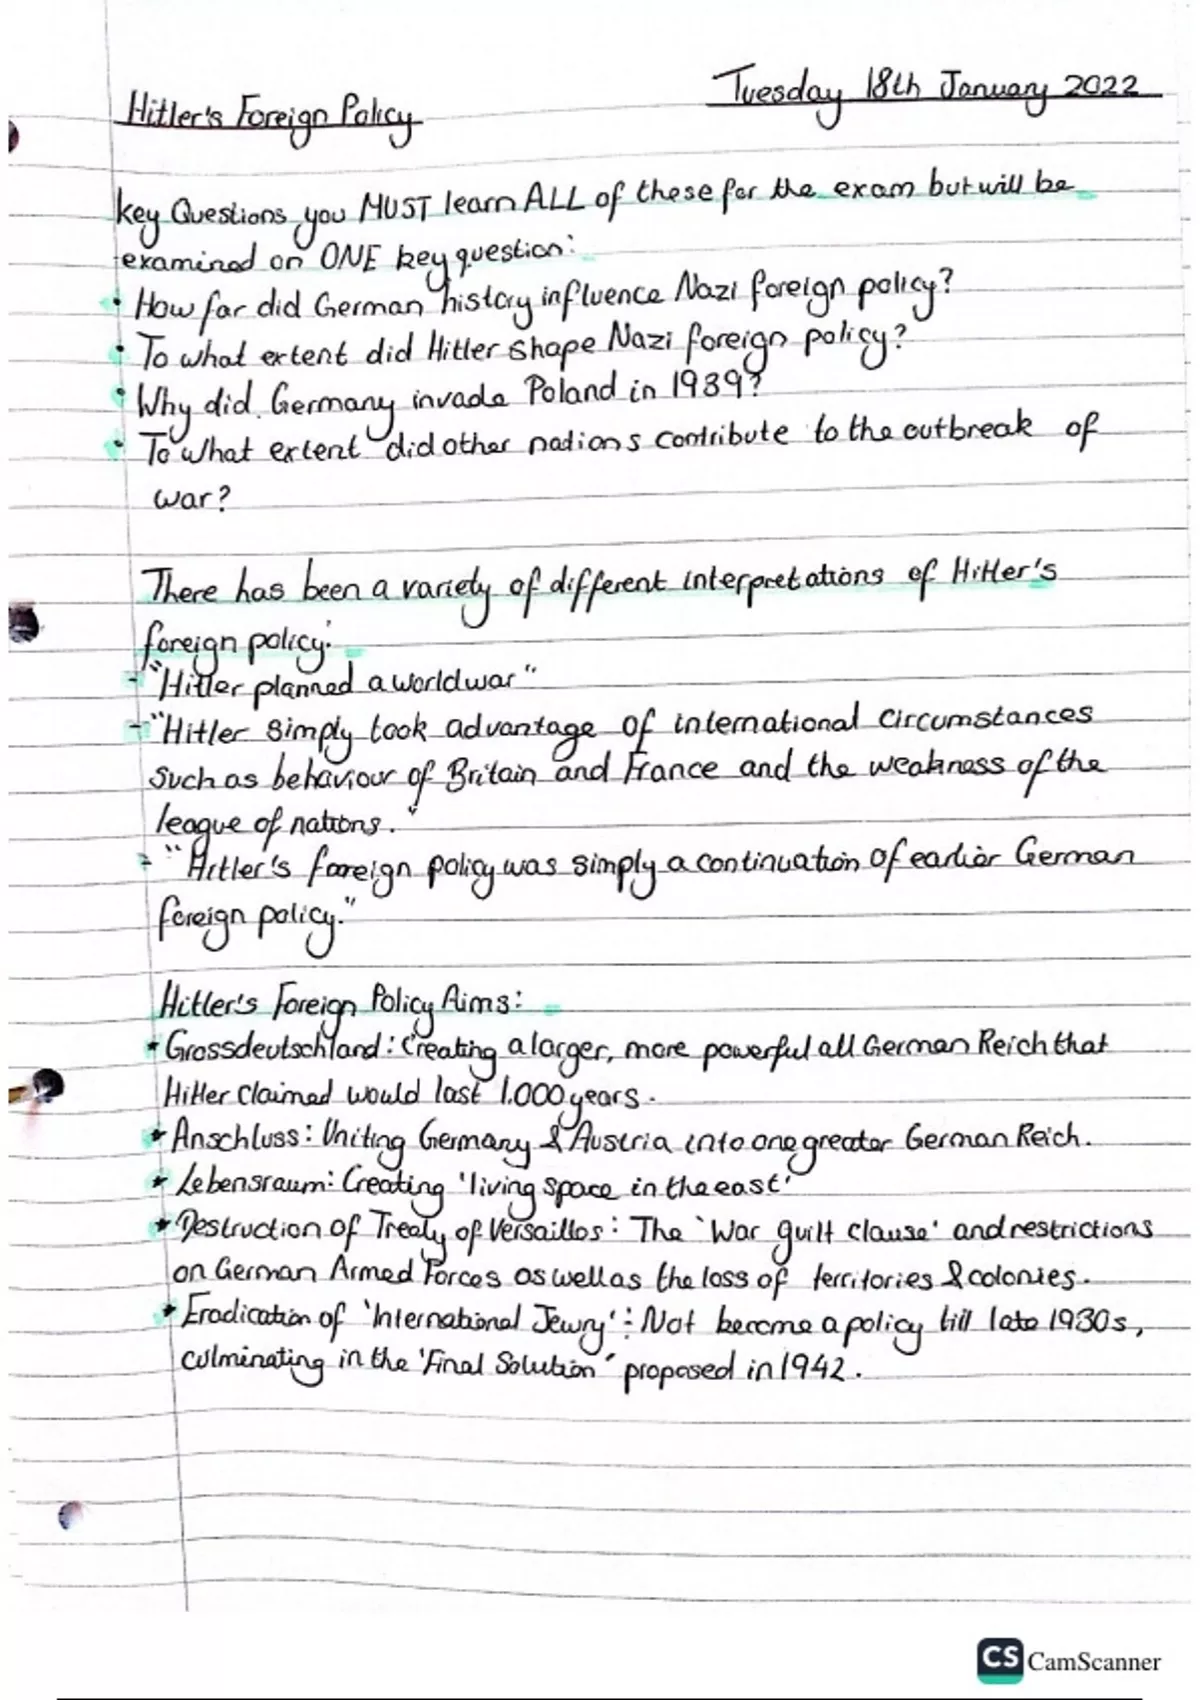 Tuesday 18th January 2022
Hitler's Foreign Policy
Key Questions you MUST learn ALL of these for the exam but will be
examined on ONE key question:
• How far did German history influence Nazi foreign policy?
• To what extent did Hitler shape Nazi foreign policy?
• Why did Germany invade Poland in 1939?
• To what extent did other nations contribute to the outbreak of
war?
There has been a variety of different interpretations of Hitler's
foreign policy:
- "Hitler planned a world war"
- "Hitler simply took advantage of international circumstances
such as behaviour of Britain and France and the weakness of the
league of nations."
- "Hitler's foreign policy was simply a continuation of earlier German
foreign policy."
Hitler's Foreign Policy Aims:
* Grossdeutschland: Creating a larger, more powerful all German Reich that
Hitler claimed would last 1.000 years.
* Anschluss: Uniting Germany & Austria into one greater German Reich.
* Lebensraum: Creating 'living space in the east'
* Destruction of Treaty of Versailles: The 'War guilt clause' and restrictions
on German Armed Forces as well as the loss of territories & colonies.
* Eradication of 'International Jewry': Not become a policy till late 1930s,
culminating in the 'Final Solution' proposed in 1942.
CS CamScanner